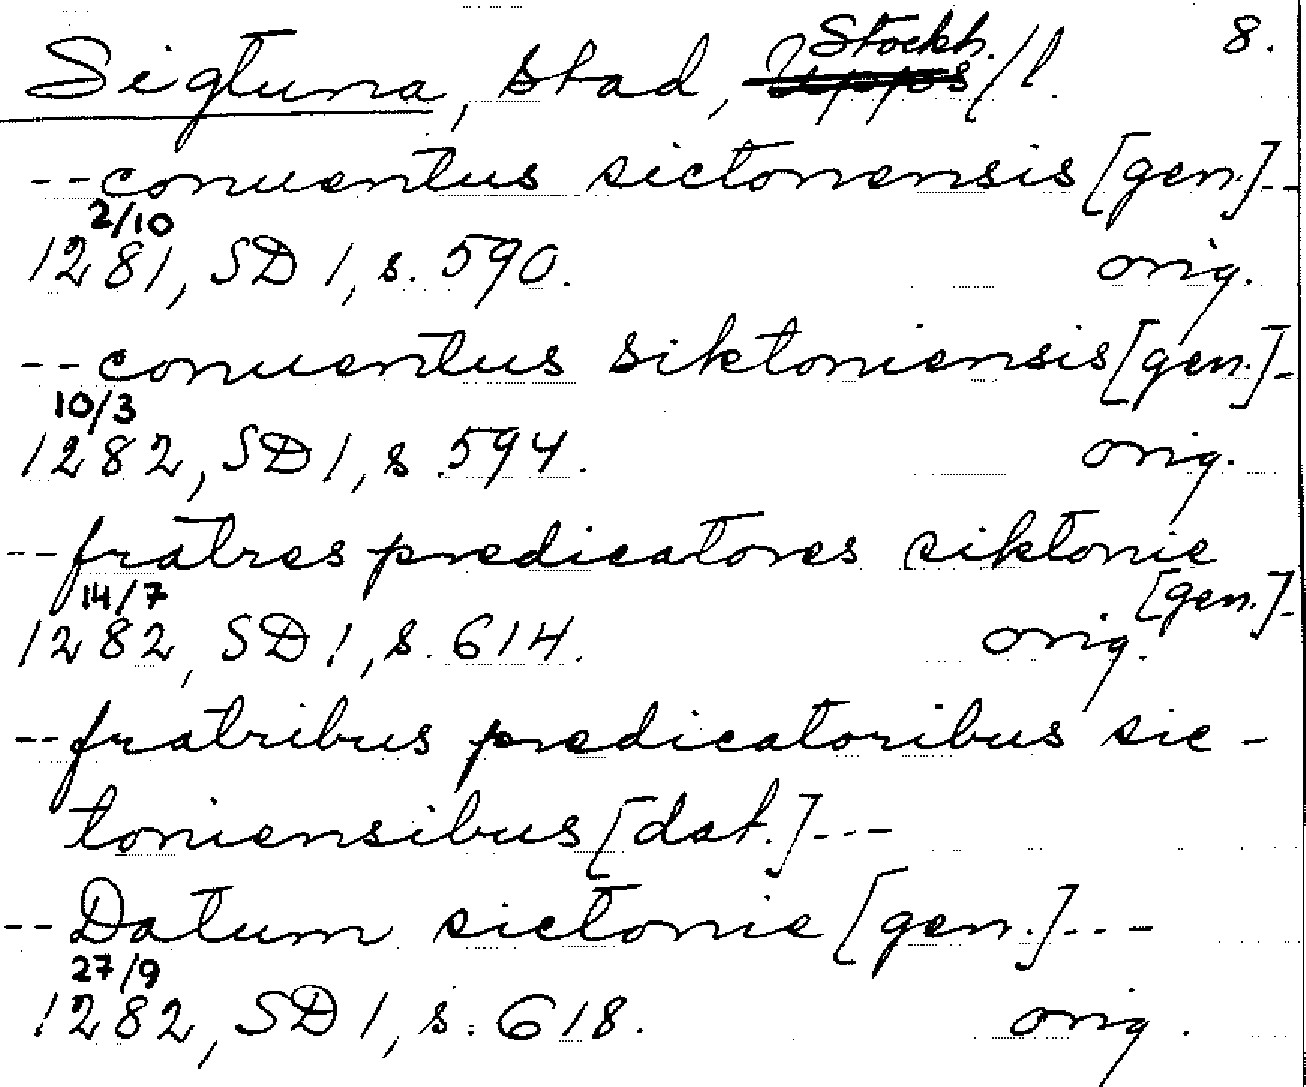 Sigtuna, stad, Stockh./l. 8.
--conuentus sictonensis [gen.]--
2/10
1281, SD 1, s. 590. orig.
--conuentus siktoniensis [gen.]--
10/3
1282, SD 1, s 594. orig.
--fratres predicatores siktonie
14/7 [gen.]--
1282, SD 1, s. 614. orig.
--fratribus predicatoribus sic-
toniensibus [dat.]---
--Datum sictonie [gen.]---
27/9
1282, SD 1, s. 618. orig.